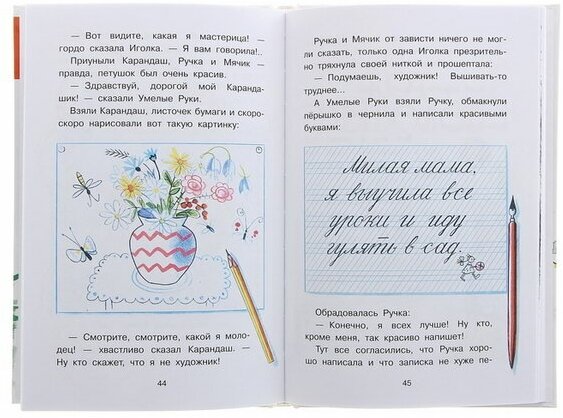 — Вот видите, какая я мастерица! —
гордо сказала Иголка. — Я вам говорила!..
Приуныли Карандаш, Ручка и Мячик —
правда, петушок был очень красив.
— Здравствуй, дорогой мой Каранда-
шик! — сказали Умелые Руки.
Взяли Карандаш, листочек бумаги и скоро-
скоро нарисовали вот такую картинку:
— Смотрите, смотрите, какой я моло-
дец! — хвастливо сказал Карандаш. —
Ну кто скажет, что я не художник!
44
Ручка и Мячик от зависти ничего не мог-
ли сказать, только одна Иголка презритель-
но тряхнула своей ниткой и прошептала:
— Подумаешь, художник! Вышивать-то
труднее...
А Умелые Руки взяли Ручку, обмакнули
пёрышко в чернила и написали красивыми
буквами:
Милая мама,
я выучила все
уроки и иду
гулять в сад.
Обрадовалась Ручка:
— Конечно, я всех лучше! Ну кто,
кроме меня, так красиво напишет!
Тут все согласились, что Ручка хоро-
шо написала и что записка не хуже пе-
45